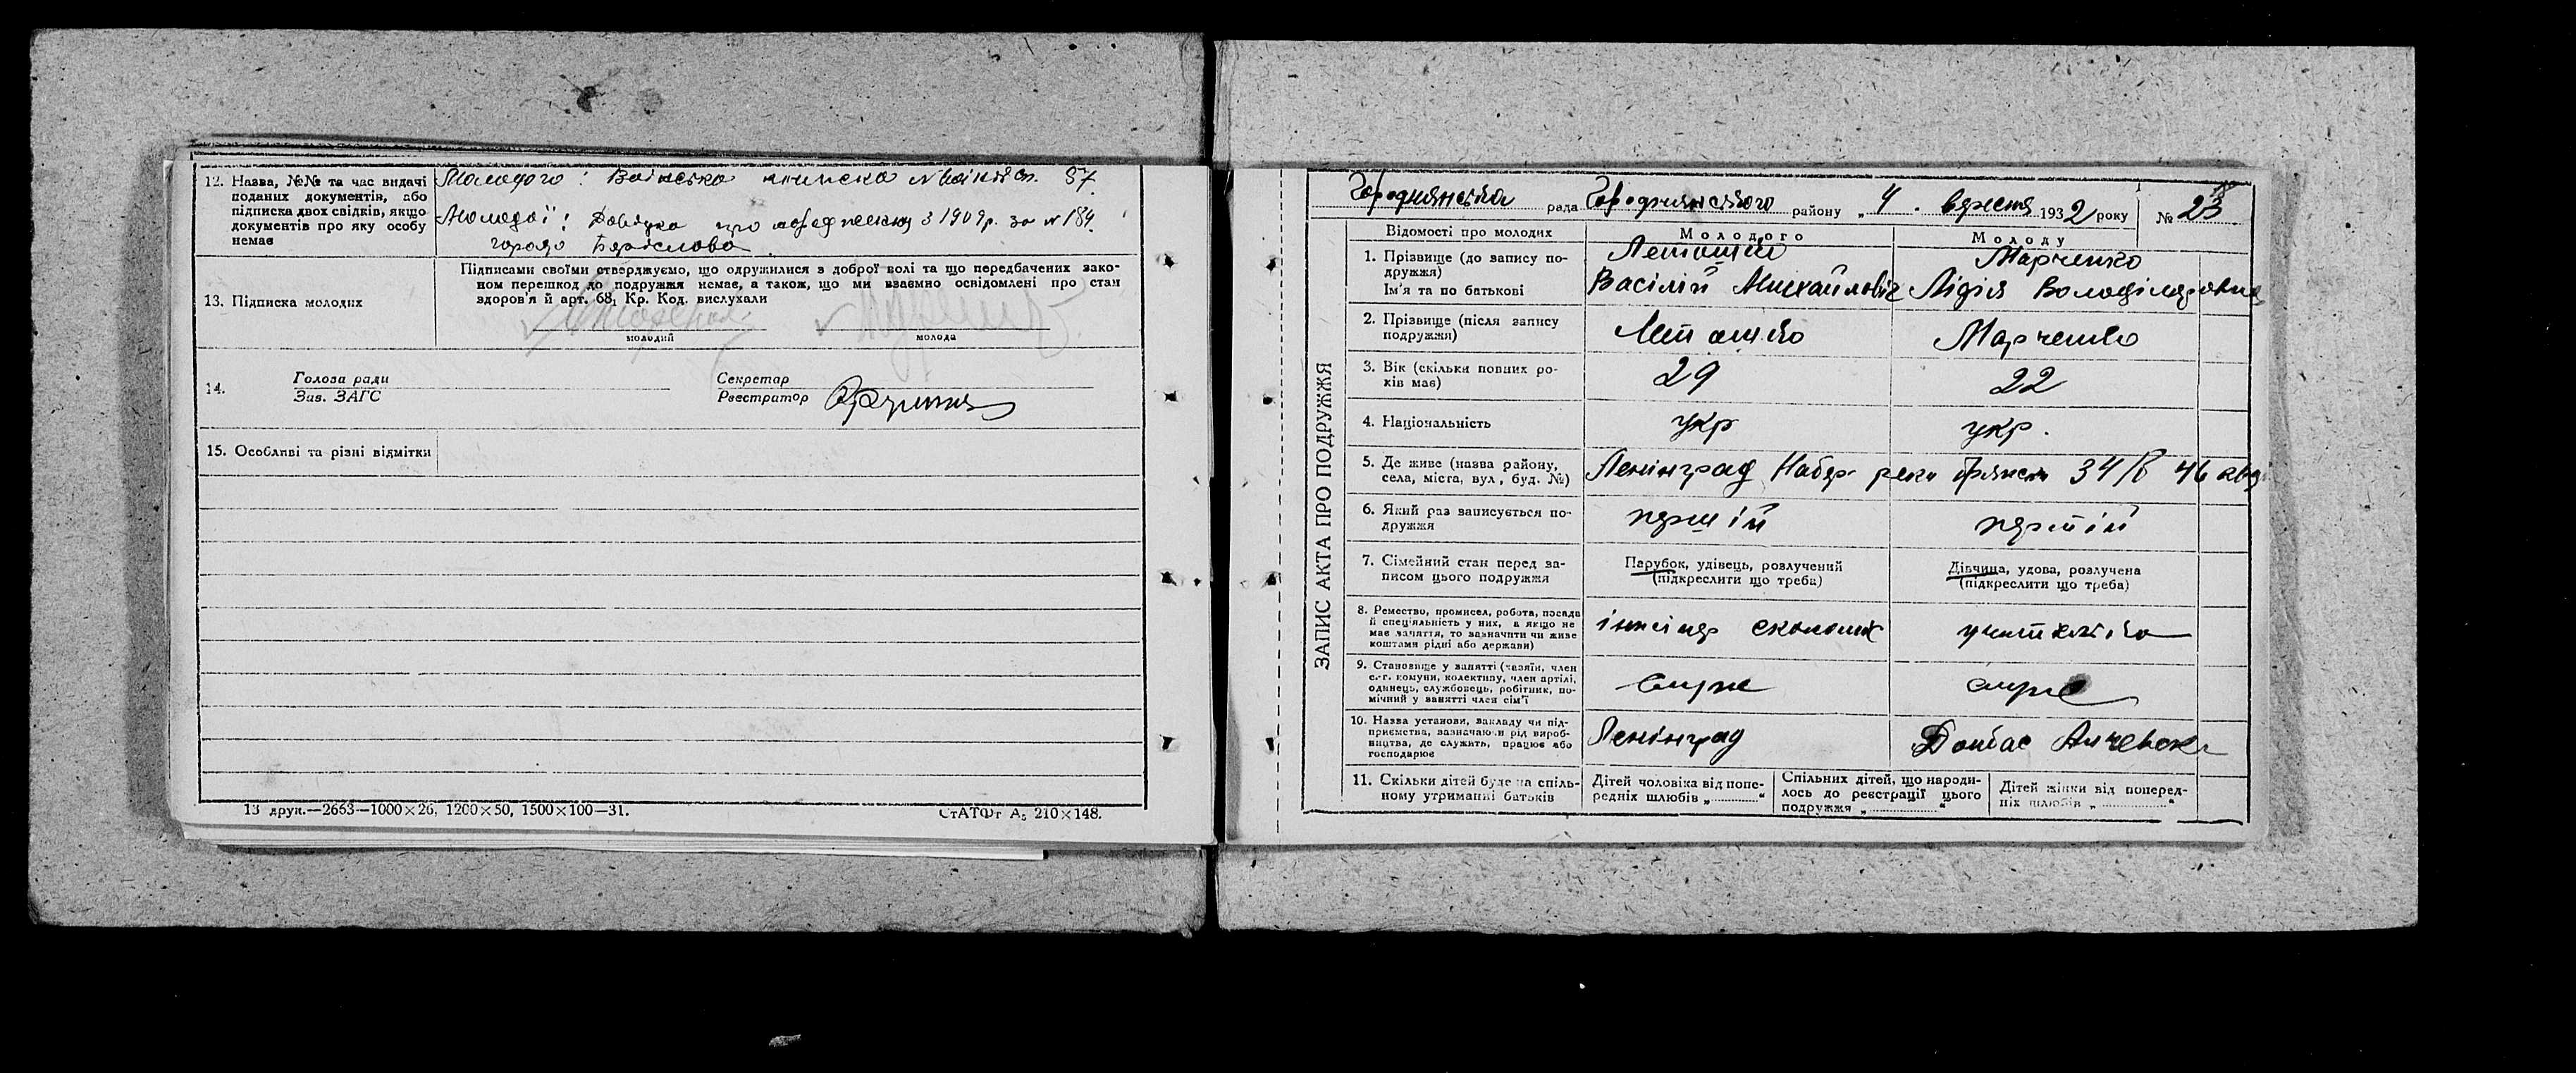 12. Назва, №№ та час видачі
поданих документів, або
підписка двох свідків, якщо
документів про яку особу
немає
Молодого: Воінська книжка № 87.
Молодої: Довідка про народження з 1909 р. за № 184.
города Беріслова
13. Підписка молодих
Підписами своїми стверджуємо, що одружилися з доброї волі та що передбачених зако-
ном перешкод до подружжя немає, а також, що ми взаємно освідомлені про стан
здоров'я й арт. 68₁ Кр. Код. вислухали
молодий
молода
14.
Голова ради
Зав. ЗАГС
Секретар
Реєстратор
15. Особливі та різні відмітки
13 друк.—2663—1000×26, 1200×50, 1500×100—31.
СтАТФт А₅ 210×148.
ЗАПИС АКТА ПРО ПОДРУЖЖЯ
Городнянська рада Городнянського району „4. вересня 1932 року № 23
Відомості про молодих
Молодого
Молоду
1. Прізвище (до запису по-
дружжя)
Ім'я та по батькові
Марченко
Васілій Михайлович
Лідія Володіміровна
2. Прізвище (після запису
подружжя)
Марченко
3. Вік (скільки повних ро-
ків має)
29
22
4. Національність
укр
укр.
5. Де живе (назва району,
села, міста, вул., буд. №)
Ленінград Набер реки 34/8 46 кв
6. Який раз записується по-
дружжя
першій
першій
7. Сімейний стан перед за-
писом цього подружжя
Парубок, удівець, розлучений
(підкреслити що треба)
Дівчина, удова, розлучена
(підкреслити що треба)
8. Ремество, промисел, робота, посада
й спеціяльність у них, а якщо не
має заняття, то зазначити чи живе
коштами рідні або держави)
інженер економіст
учителька
9. Становище у занятті (хазяїн, член
с.-г. комуни, колективу, член артілі,
одинець, службовець, робітник, по-
мічний у занятті член сім'ї
служ
служ
10. Назва установи, закладу чи під-
приємства, зазначаючи рід вироб-
ництва, де служить, працює або
господарює
Ленінград
Донбас Алчевськ
11. Скільки дітей буде на спіль-
ному утриманні батьків
Дітей чоловіка від попе-
редніх шлюбів „ “
Спільних дітей, що народи-
лось до реєстрації цього
подружжя „ “
Дітей жінки від поперед-
ніх шлюбів „ “